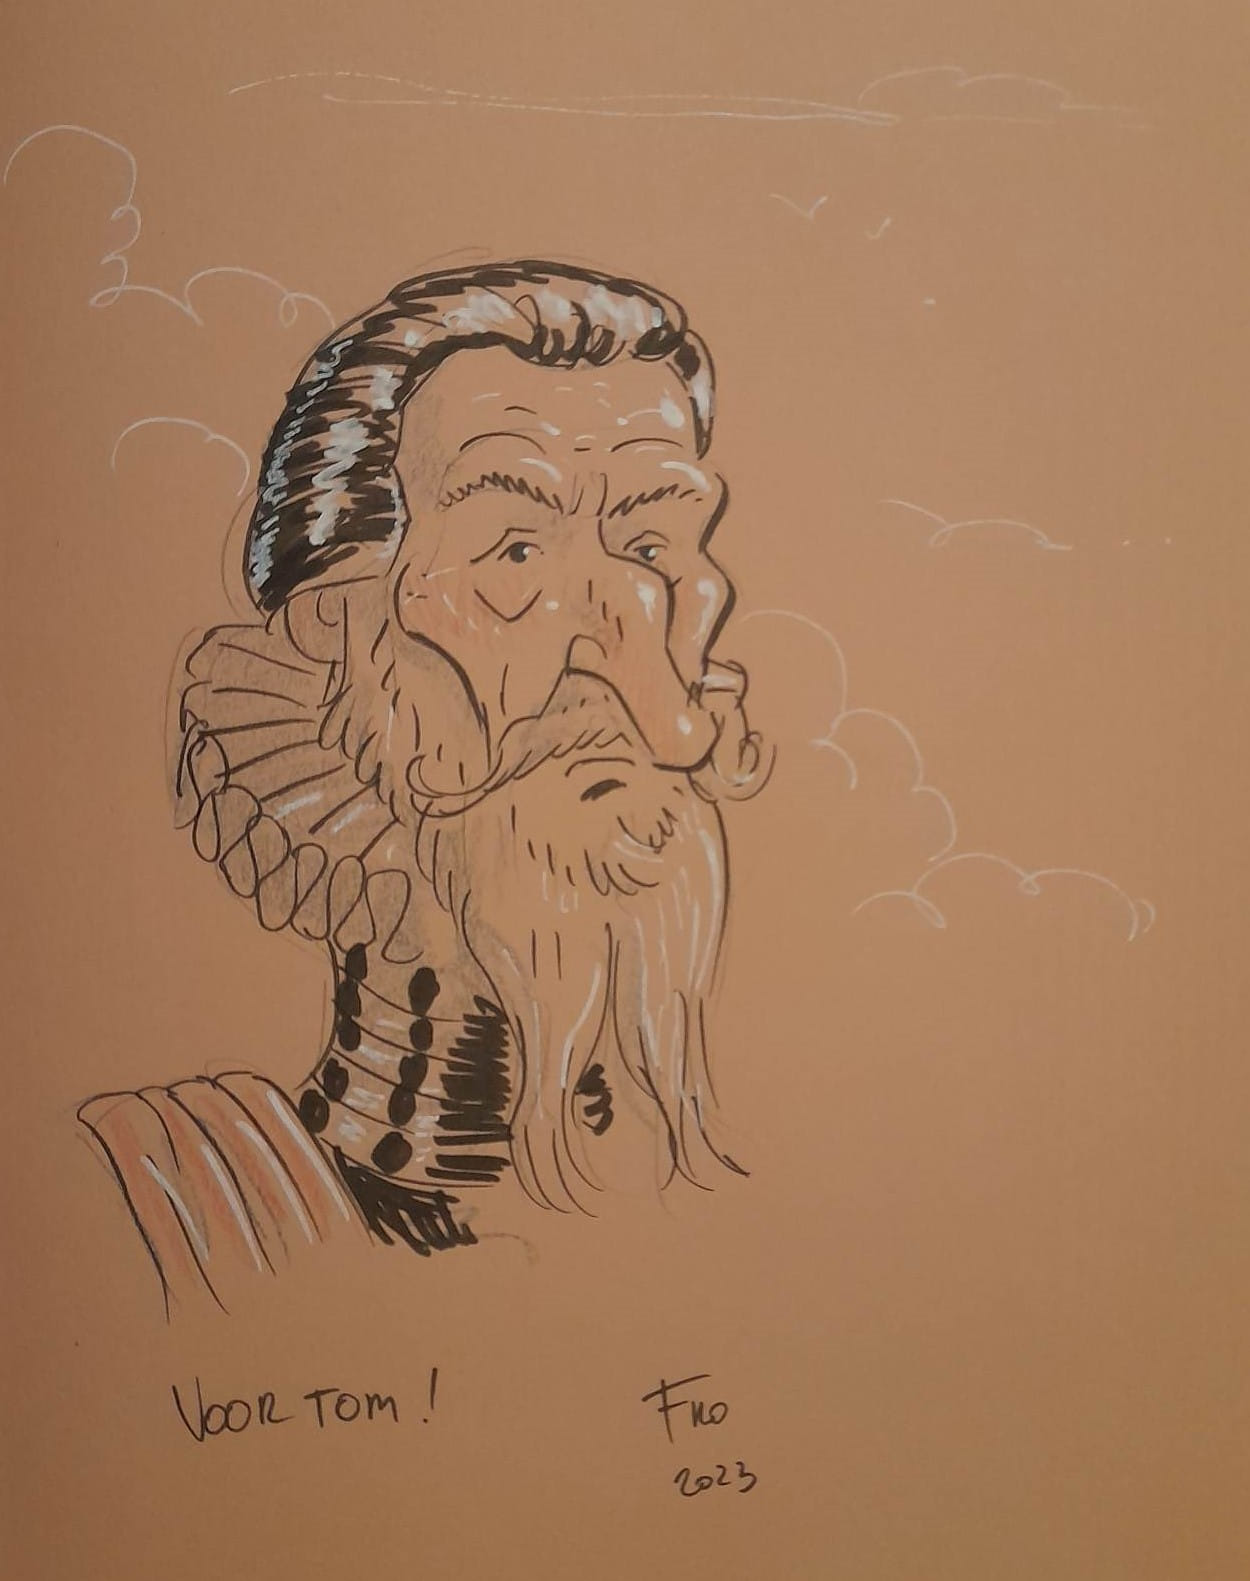 VOOR TOM!
FRO
2023